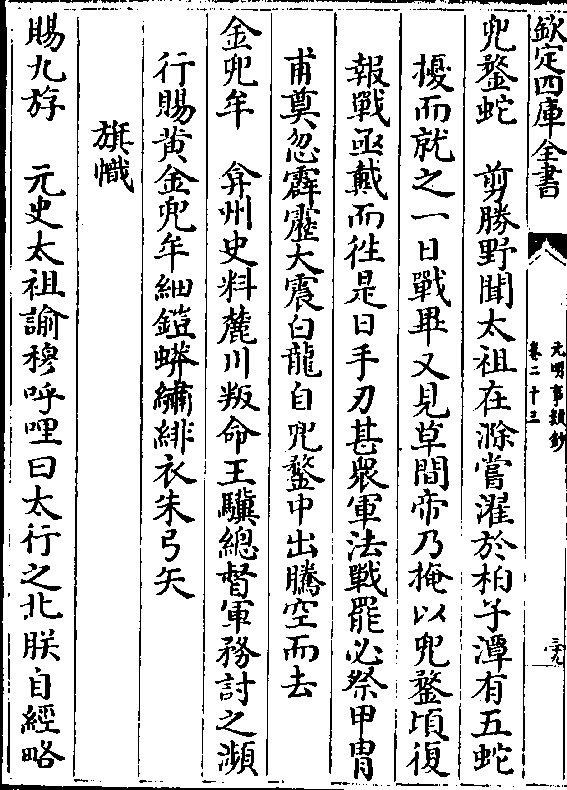 欽定四庫全書
元明事類鈔
卷二十三
三九
兜鍪蛇　剪勝野聞太祖在滁嘗濯於柏子潭有五蛇
擾而就之一日戰畢又見草間帝乃掩以兜鍪頃復
報戰亟戴而徃是日手刃甚衆軍法戰罷必祭甲胄
甫奠忽霹靂大震白龍自兜鍪中出騰空而去
金兜牟　弇州史料麓川叛命王驥總督軍務討之瀕
行賜黄金兜牟細鎧蟒繡緋衣朱弓矢
旗幟
賜九斿　元史太祖諭穆呼哩曰太行之北朕自經略